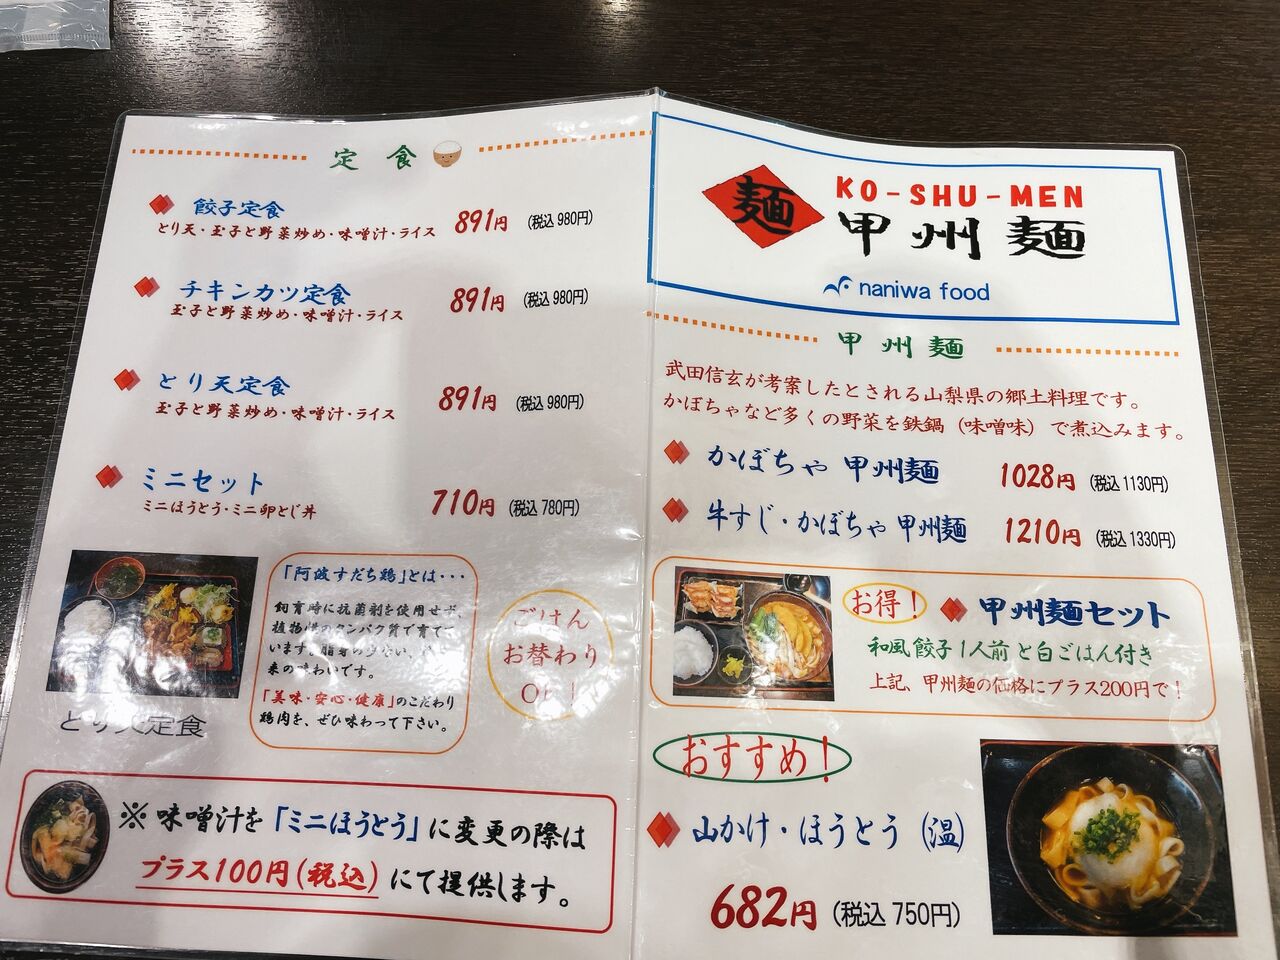 定食
餃子定食
とり天・玉子と野菜炒め・味噌汁・ライス
891円 (税込980円)
チキンカツ定食
玉子と野菜炒め・味噌汁・ライス
891円 (税込980円)
とり天定食
玉子と野菜炒め・味噌汁・ライス
891円 (税込980円)
ミニセット
ミニほうとう・ミニ卵とじ丼
710円 (税込780円)
とり天定食
「阿波すだち鶏」とは・・・
飼育時に抗菌剤を使用せず、
植物性のタンパク質で育て
います。脂身の少ない、
来の味わいです。
「美味・安心・健康」のこだわり
鶏肉を、ぜひ味わって下さい。
ごはん
お替わり
OK!
※味噌汁を「ミニほうとう」に変更の際は
プラス100円(税込)にて提供します。
麺
KO-SHU-MEN
甲州麺
naniwa food
甲州麺
武田信玄が考案したとされる山梨県の郷土料理です。
かぼちゃなど多くの野菜を鉄鍋(味噌味)で煮込みます。
かぼちゃ 甲州麺 1028円 (税込1130円)
牛すじ・かぼちゃ 甲州麺 1210円 (税込1330円)
お得! 甲州麺セット
和風餃子1人前と白ごはん付き
上記、甲州麺の価格にプラス200円で!
おすすめ!
山かけ・ほうとう(温)
682円 (税込750円)